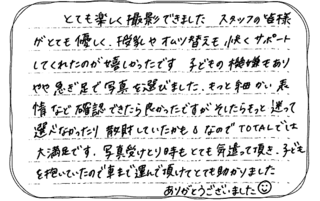 とても楽しく撮影できました スタッフの皆様
がとても優しく、授乳やオムツ替えも、快くサポート
してくれたのが嬉しかったです 子どもの機嫌もあり
やや急ぎ足で写真を選びました、もっと細かい表
情など確認できたら良かったですが そしたらもっと迷って
選べなかったり 散財していたかも💧なのでTOTALでは
大満足です。写真受けとり時もとても気遣って頂き、子ども
を抱いていたので車まで運んで頂けてとても助かりました
ありがとうございました☺